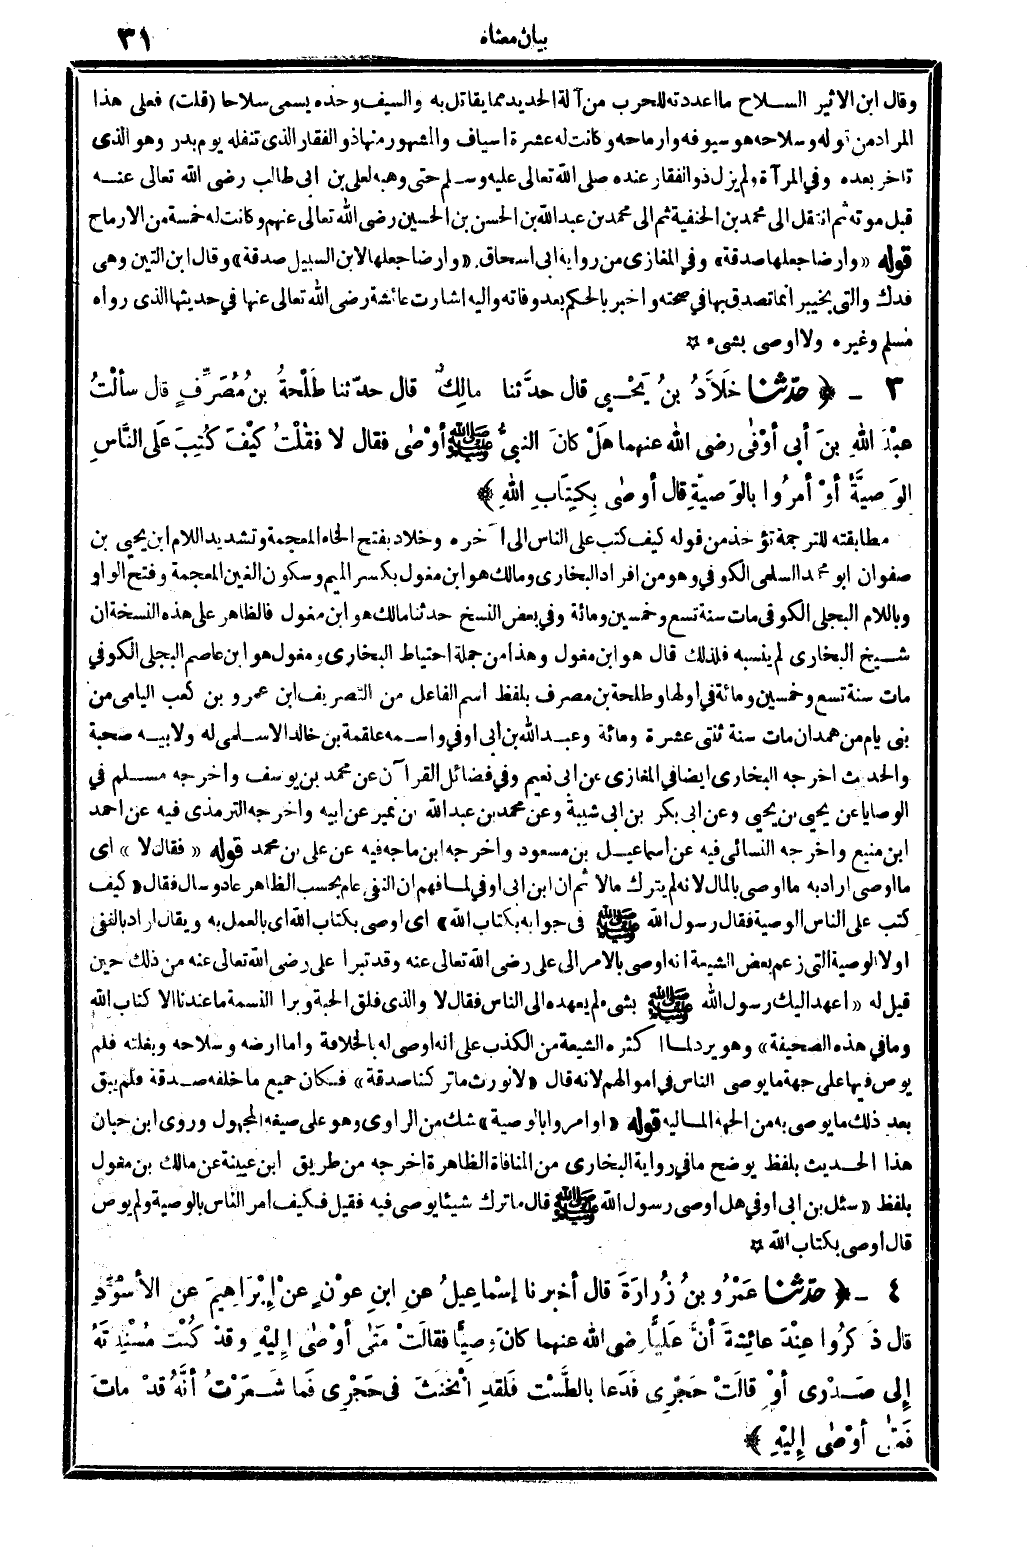 بيان معناه ٣١
وقال ابن الاثير الســلاح مااعددته للحرب من آلة الحديد مما يقاتل به والسيف وحده يسمى سلاحا (قلت) فعلى هذا
المراد من قوله وسلاحه هو سيوفه وارماحه وكانت له عشرة اسياف والمشهور منها ذو الفقار الذى تنفله يوم بدر وهو الذى
تاخر بعده وفي المرآة ولم يزل ذو الفقار عنده صلى الله تعالى عليه وسـلم حتى وهبه لعلى بن ابى طالب رضى الله تعالى عنـه
قبل موته ثم انتقل الى محمد بن الحنفية ثم الى محمد بن عبدالله بن الحسن بن الحسين رضى الله تعالى عنهم وكانت له خمسة من الارماح
قوله «وارضا جعلها صدقة» وفي المغازى من رواية ابى اسحاق «وارضا جعلها لابن السبيل صدقة» وقال ابن التين وهى
فدك والتى بخيبر انما تصدق بها في صحته واخبر بالحكم بعد وفاته واليه اشارت عائشة رضى الله تعالى عنها في حديثها الذى رواه
مسلم وغيره ولا اوصى بشىء ✡
٣ ـ ﴿ حدّثنا خَلاَّدُ بنُ يَحْـيي قال حدَّثنا مالِكٌ قال حدّثنا طَلْحةُ بنُ مُصَرِّفٍ قال سألْتُ
عبْدَ اللهِ بنَ أبى أوْفٰى رضى الله عنهما هَلْ كانَ النبيُّ ﷺ أوْصٰى فقال لا فقُلْتُ كيْفَ كُتِبَ عَلَى النَّاسِ
الوَصِيَّةُ أوْ أُمِرُوا بالوَصِيَّةِ قال أوصٰى بِكِتَابِ اللهِ ﴾
مطابقته للترجمة تؤخذ من قوله كيف كتب على الناس الى آخره وخلاد بفتح الخاء المعجمة وتشديد اللام ابن يحيى بن
صفوان ابو محمد السلمى الكوفي وهو من افراد البخارى ومالك هو ابن مغول بكسر الميم وسكون الغين المعجمة وفتح الواو
وباللام البجلى الكوفى مات سنة تسع وخمسين ومائة وفي بعض النسخ حدثنا مالك هو ابن مغول فالظاهر على هذه النسخة ان
شـيخ البخارى لم ينسبه فلذلك قال هو ابن مغول وهذا من جملة احتياط البخارى ومغول هو ابن عاصم البجلى الكوفي
مات سنة تسع وخمسين ومائة في اولها وطلحة بن مصرف بلفظ اسم الفاعل من التصريف ابن عمرو بن كعب اليامى من
بنى يام من همدان مات سنة ثنتى عشرة ومائة وعبـدالله بن أبى أوفي واسـمه علقمة بن خالد الاسـلمى له ولابيـه صحبة
والحديث اخرجه البخارى ايضا في المغازى عن ابى نعيم وفي فضائل القرآن عن محمد بن يوسف واخرجه مسـلم في
الوصايا عن يحيى بن يحيى وعن ابى بكر بن ابى شيبة وعن محمد بن عبدالله بن نمير عن ابيه واخرجه الترمذى فيه عن احمد
ابن منيع واخرجه النسائى فيه عن اسماعيـل بن مسعود واخرجه ابن ماجه فيه عن على بن محمد قوله «فقال لا» اى
ما اوصى اراد به ما اوصى بالمال لانه لم يترك مالا ثم ان ابن ابى اوفي لما فهم ان النفى عام بحسب الظاهر عاد وسال فقال «كيف
كتب على الناس الوصية فقال رسول الله ﷺ فى جوابه بكتاب الله» اى اوصى بكتاب الله اى بالعمل به ويقال اراد بالنفى
اولا الوصية التى زعم بعض الشيعة انه اوصى بالامر الى على رضى الله تعالى عنه وقد تبرا على رضى الله تعالى عنه من ذلك حين
قيل له «اعهد اليك رسول الله ﷺ بشى ء لم يعهده الى الناس فقال لا والذى فلق الحبة وبرا النسمة ما عندنا الا كتاب الله
وما في هذه الصحيفة» وهو يرد لما اكثره الشيعة من الكذب على انه اوصى له بالخلافة واما ارضه وسلاحه وبغلته فلم
يوص فيها على جهة ما يوصى الناس في اموالهم لانه قال «لا نورث ما تركنا صدقة» فـكان جميع ما خلفه صـدقة فلم يبق
بعد ذلك ما يوصى به من الجهة المـاليه قوله «او امروا بالوصية» شك من الراوى وهو على صيغه المجهول وروى ابن حبان
هذا الحـديث بلفظ يوضح ما في رواية البخارى من المنافاة الظاهرة اخرجه من طريق ابن عيينة عن مالك بن مغول
بلفظ «سئل بن ابى أوفي هل أوصى رسول الله ﷺ قال ما ترك شيئا يوصى فيه فقيل فـكيف امر الناس بالوصية ولم يوص
قال أوصى بكتاب الله ✡
٤ ـ ﴿ حدّثنا عَمْرُو بنُ زُرارَةَ قال أخبرنا إسْماعِيلُ عنِ ابنِ عوْنٍ عنْ إبْرَاهِيمَ عنِ الأسْوَدِ
قال ذَكَرُوا عِنْدَ عائِشةَ أنَّ عَلَيًّا رضى الله عنهما كانَ وصِيًّا فقالَتْ مَتٰى أوْصٰى إليْهِ وقدْ كُنْتُ مُسْنِدَتَهُ
إلى صَـدْرِى أوْ قالَتْ حَجْرِى فَدَعا بالطَّسْتِ فَلقدِ انْخَنَثَ فى حَجْرِى فَما شَـعَرْتُ أنَّهُ قدْ ماتَ
فَمَتٰى أوْصٰى إليْهِ ﴾